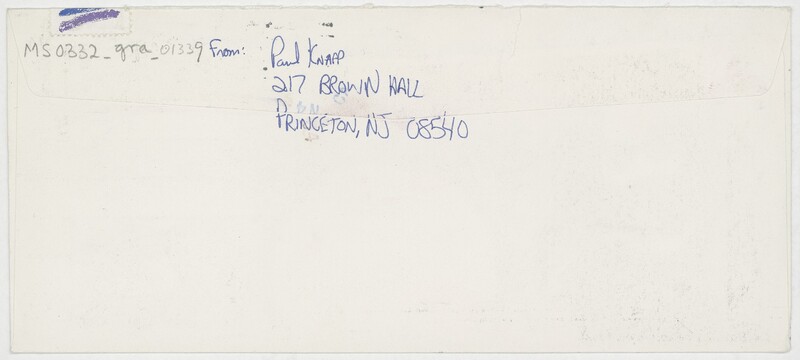 MS0332_gra_01339 From: Paul Knapp
217 BROWN HALL
PRINCETON, NJ 08540